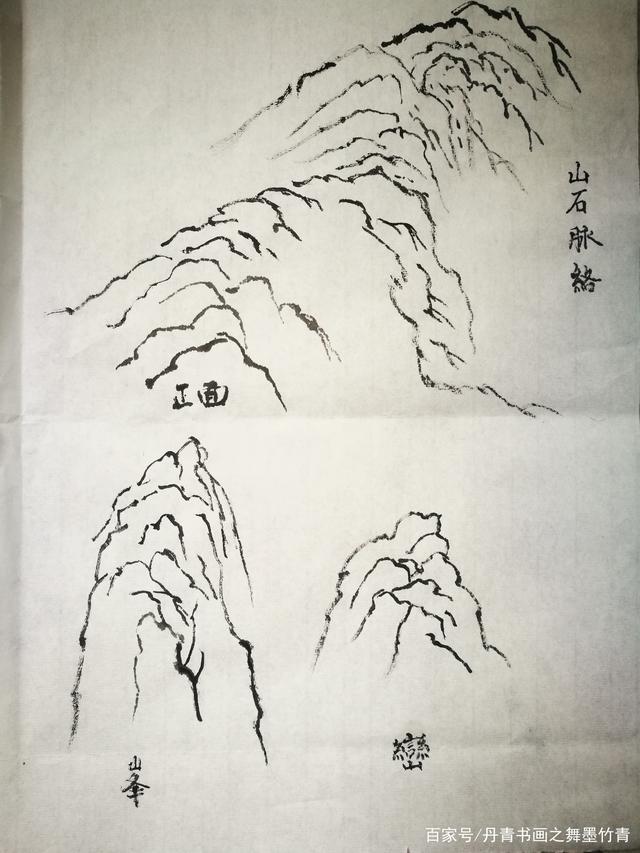 山石脉络
正面
山峯
巒
百家号/丹青书画之舞墨竹青